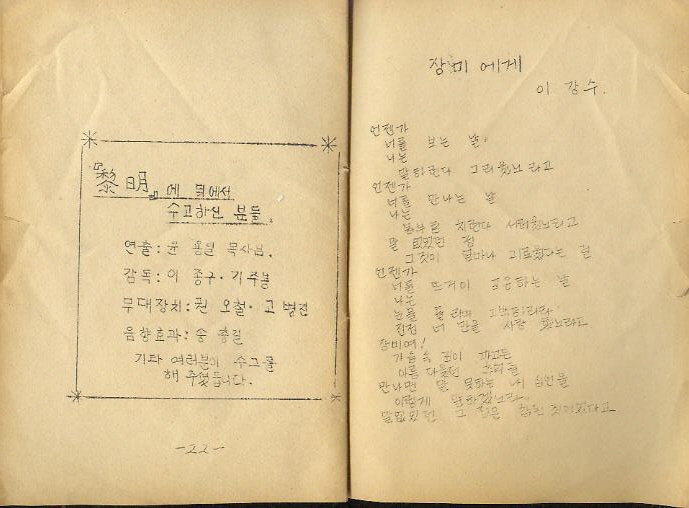 『黎明』에 뒤에서
수고하신 분들.
연출: 윤 목사님.
감독: 이 종구·기주봉
무대장치: 권 오철·고 병진
음향효과: 송 종길
기타 여러분이 수고를
해 주셨읍니다.
-22-
장미에게
이 강수.
언젠가
너를 보는 날.
나는
말하련다 그리웠노라고
언젠가
너를 만나는 날
나는
서러웠노라고
말 없었던 점
그것이 얼마나 괴로웠다는 걸
언젠가
너를 뜨거이 포옹하는 날
나는
눈물 흘리며 고백하리라
진정 너 만을 사랑 했노라고
장미여!
가슴 속 깊이 파고든
만나면 말 못하는 내 심언을
이렇게 말하겠노라.
말없었던 그 점은